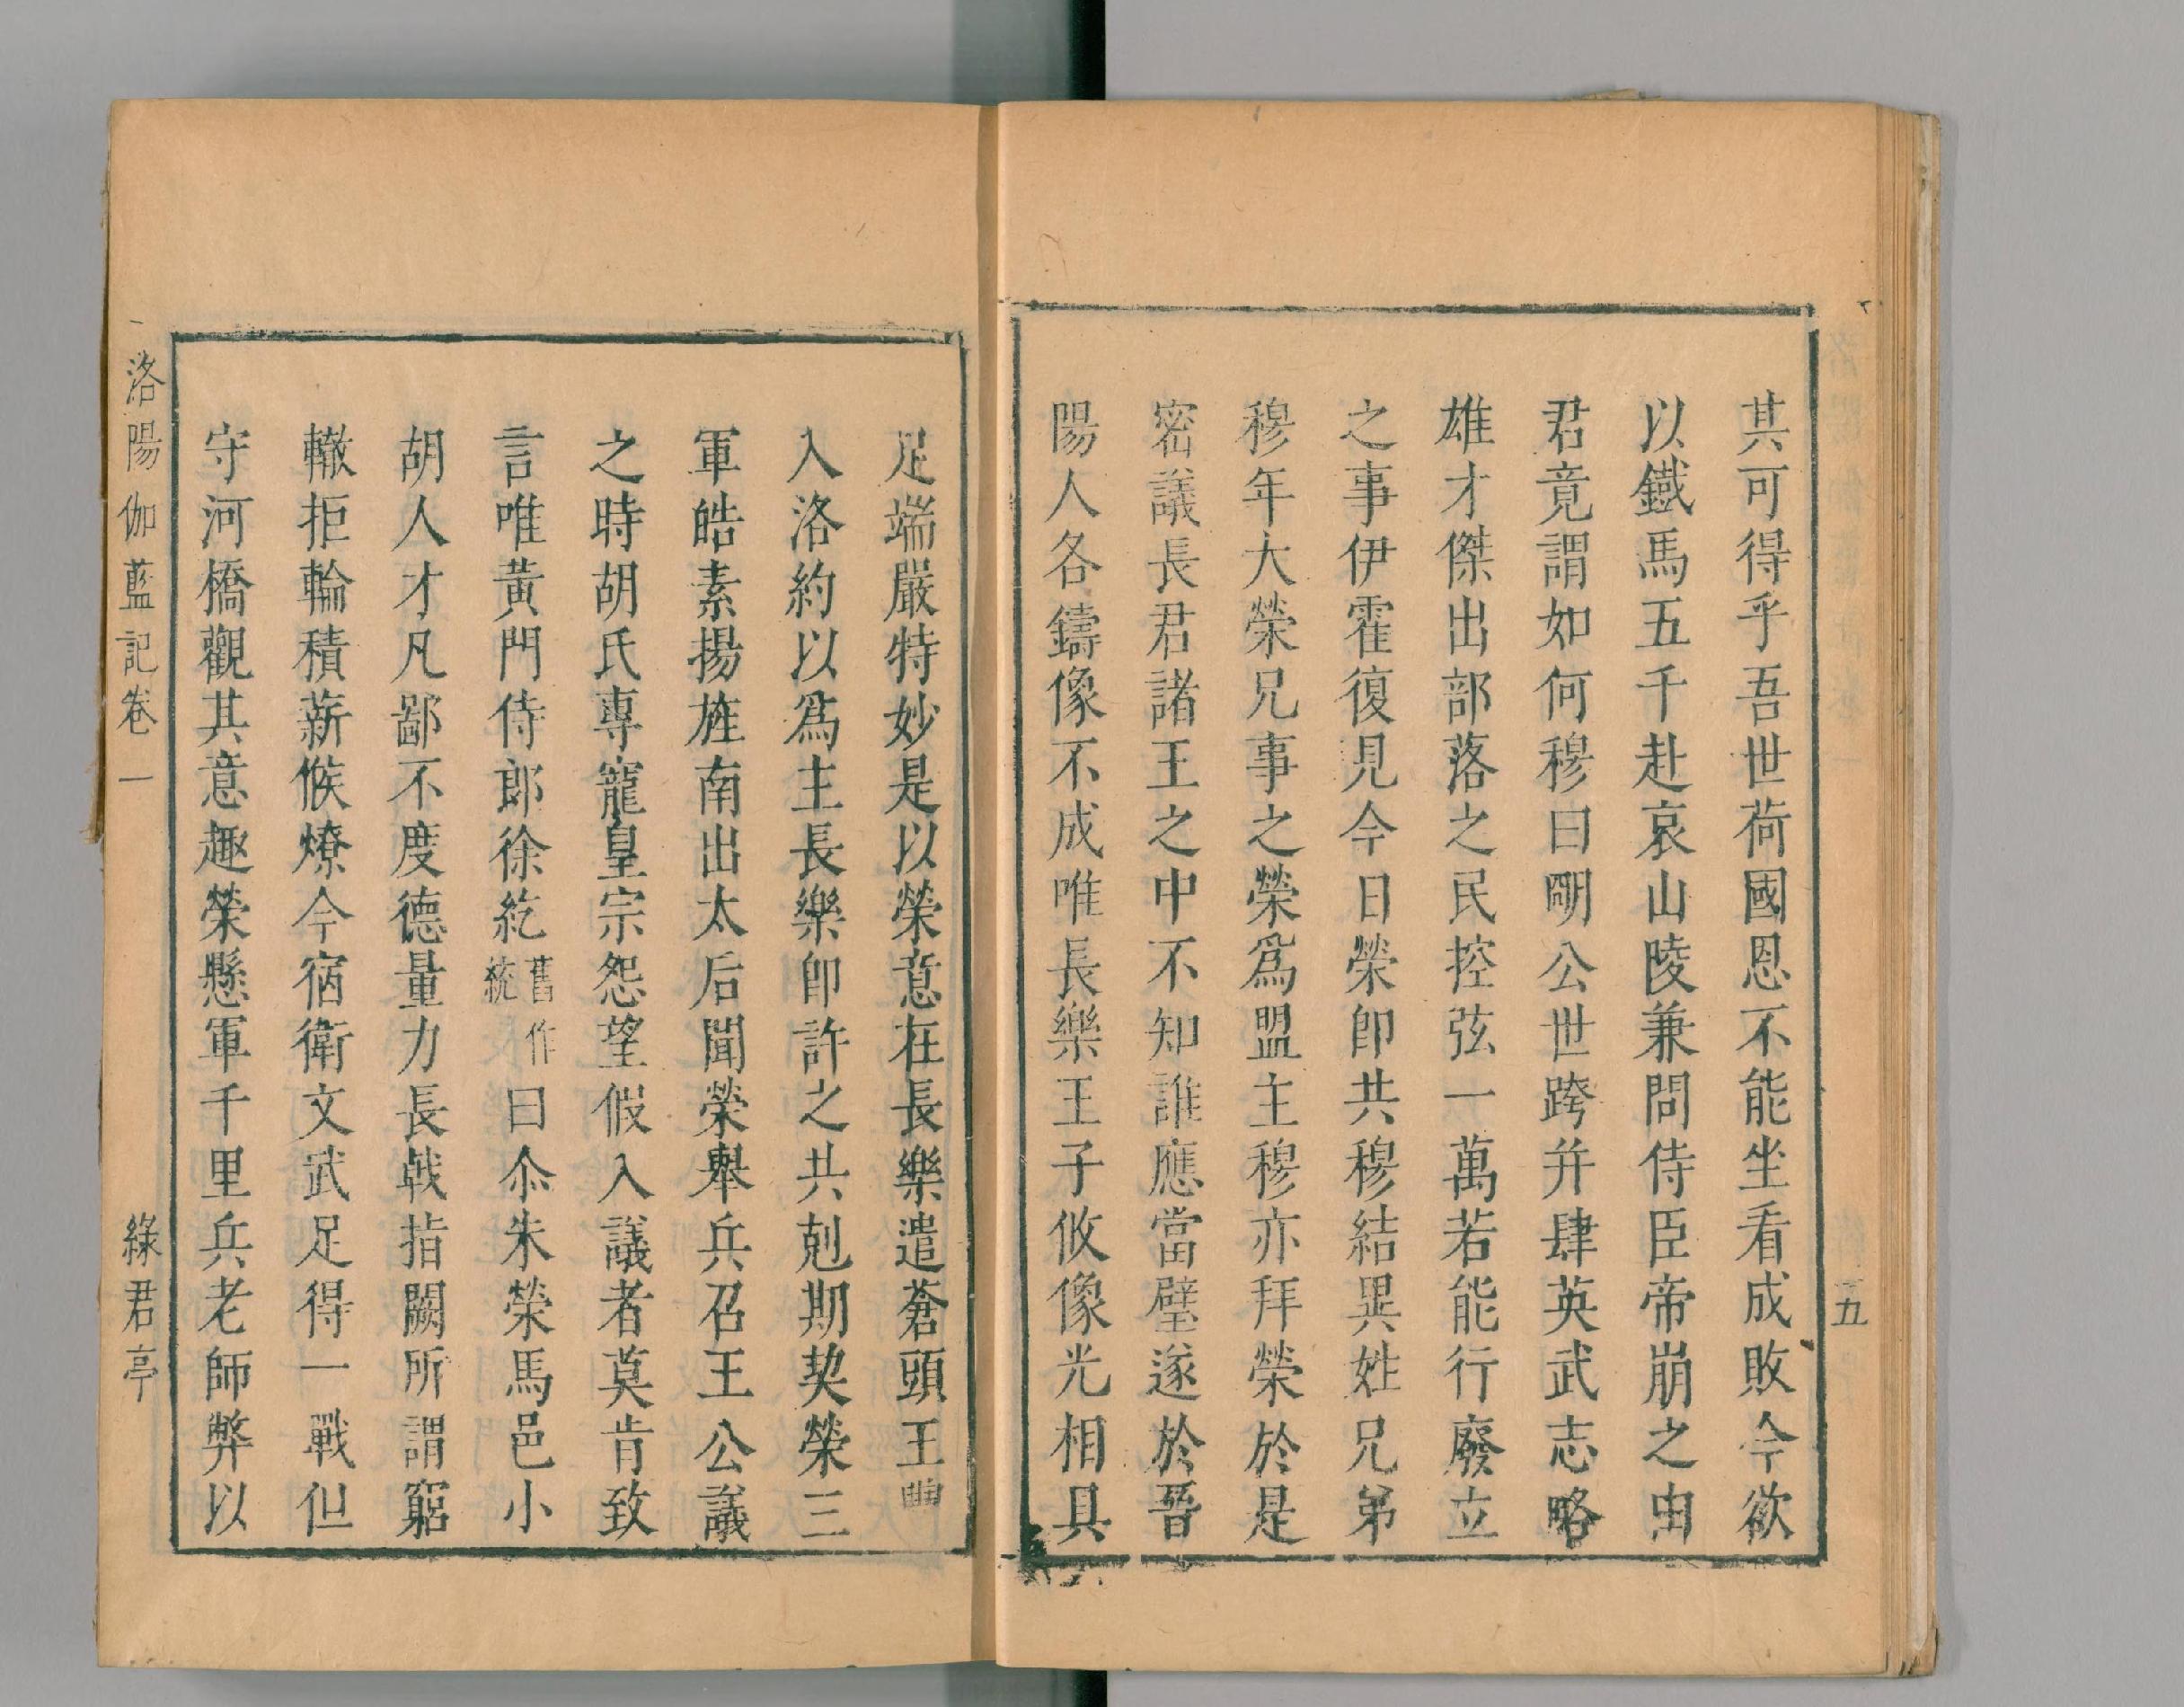 其可得乎吾世荷國恩不能坐看成敗今欲
以鐵馬五千赴哀山陵兼問侍臣帝崩之由
君竟謂如何穆曰明公世跨并肆英武志略
雄才傑出部落之民控弦一萬若能行廢立
之事伊霍復見今日榮即共穆結異姓兄弟
穆年大榮兄事之榮爲盟主穆亦拜榮於是
密議長君諸王之中不知誰應當璧遂於晉
陽人各鑄像不成唯長樂王子攸像光相具
五
足端嚴特妙是以榮意在長樂遣蒼頭王豐
入洛約以爲主長樂即許之共剋期契榮三
軍皓素揚旌南出太后聞榮舉兵召王公議
之時胡氏專寵皇宗怨望假入議者莫肯致
言唯黃門侍郎徐紇舊作統曰尒朱榮馬邑小
胡人才凡鄙不度德量力長戟指闕所謂窮
轍拒輪積薪候燎今宿衛文武足得一戰但
守河橋觀其意趣榮懸軍千里兵老師弊以
洛陽伽藍記卷一
綠君亭